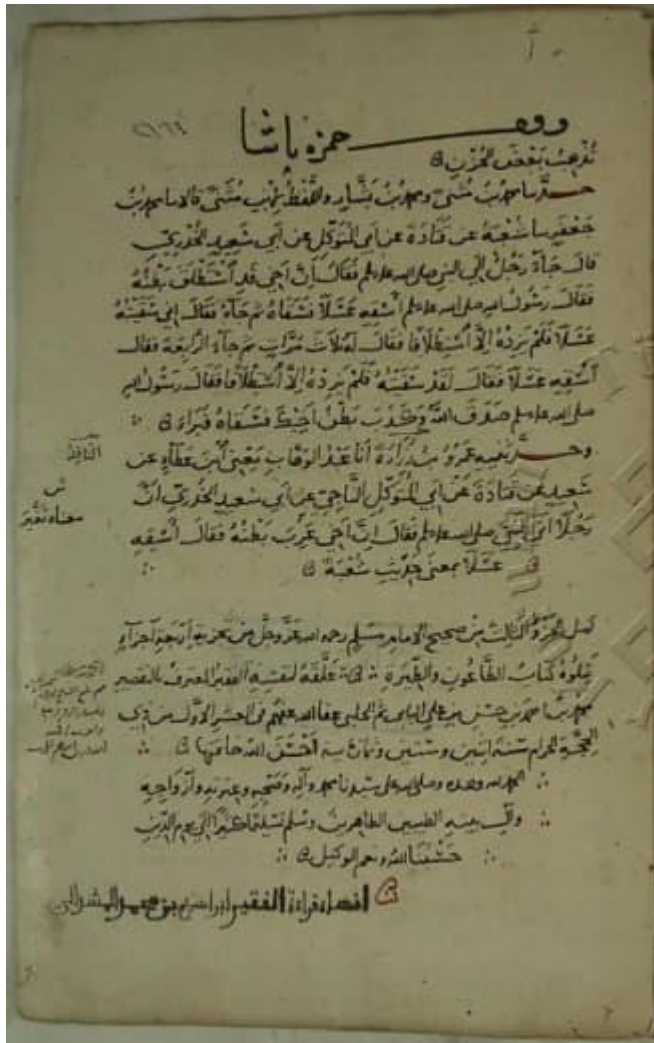 وقف حمزه باشا
تُذهب بَعْضَ الحُزْنِ
حدثنا محمد بن مُثنى ومحمد بن بَشَّارٍ واللفظُ لابن مثنى قالا نا محمد بن
جَعْفَرٍ نا شُعْبَةُ عن قَتَادَةَ عن ابي المُتَوَكِّلِ عن أبي سَعِيدٍ الخُدْرِيّ
قال جَاءَ رَجُلٌ إلى النبي صلى الله عليه وسلم فقال إنَّ أخي قد اسْتَطْلَقَ بَطْنُهُ
فقال رَسُولُ الله صلى الله عليه وسلم أَسْقِهِ عَسَلًا فَسَقَاهُ ثم جَاءَهُ فقال إني سَقَيْتُهُ
عَسَلًا فلَمْ يَزِدْهُ إلَّا اسْتِطْلَاقًا فقال لَهُ ثَلَاثَ مَرَّاتٍ ثم جاءَ الرَّابِعَةَ فقال
أَسْقِهِ عَسَلًا فقال لَقَدْ سَقَيْتُهُ فَلَمْ يَزِدْهُ إلَّا اسْتِطْلَاقًا فقال رَسُولُ الله
صلى الله عليه وسلم صَدَقَ اللهُ وكَذَبَ بَطْنُ أخِيكَ فَسَقَاهُ فَبَرَأَ
وحدثنيه عَمْرُو بنُ زُرَارَةَ أنا عَبْدُ الوَهَّابِ يَعْنِي ابْنَ عَطَاءٍ عن
سَعِيدٍ عن قَتَادَةَ عن أبي المُتَوَكِّلِ النَّاجِيِّ عن أبي سَعِيدٍ الخُدْرِيّ أنَّ
رَجُلًا أتى النبيَّ صلى الله عليه وسلم فقال إنَّ أخي عَرِبَ بَطْنُهُ فقال أَسْقِهِ
عَسَلًا بمعنى حَدِيثِ شُعْبَةَ
معناه تغير
كمل الجزءُ الثالث من صحيح الامام مسلم رحمه الله عَزَّ وجَلَّ من تجزية أربعة أجزاءٍ
يتلوهُ كتابُ الطَّاعُونِ والطِّيَرَةِ علَّقَهُ لنفسه الفقير المعترف بالتقصير
محمد بن احمد بن علي ثم الحلبي عفا الله عنهم في العشر الأوَّل من ذي
الحجة الحرام سنة اثنين وستين وثمان مائة أحْسَنَ اللهُ خاتمتها
الحمد لله وحده وصلى الله على سيدنا محمد وآله وصحبه وعترته وأزواجه
الطيبين الطاهرين وسلم تسليمًا كثيرًا إلى يوم الدين
حَسْبُنَا اللهُ ونعم الوكيل
قراءة الفقير ابراهيم بن محمد